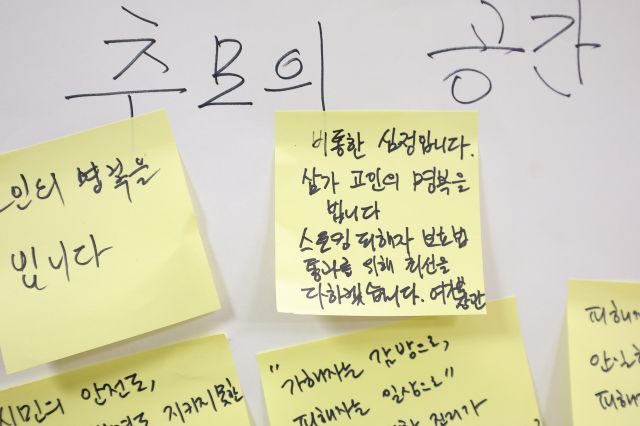 추모의 공간
인의 명복을
빕니다
비통한 심정입니다.
삼가 고인의 명복을
빕니다
스토킹 피해자 보호법
통과를 위해 최선을
다하겠습니다. 여가부 장관
시민의 안전도,
지키지 못할
"가해자는 감방으로,
피해자는 일상으로"
피해
피해